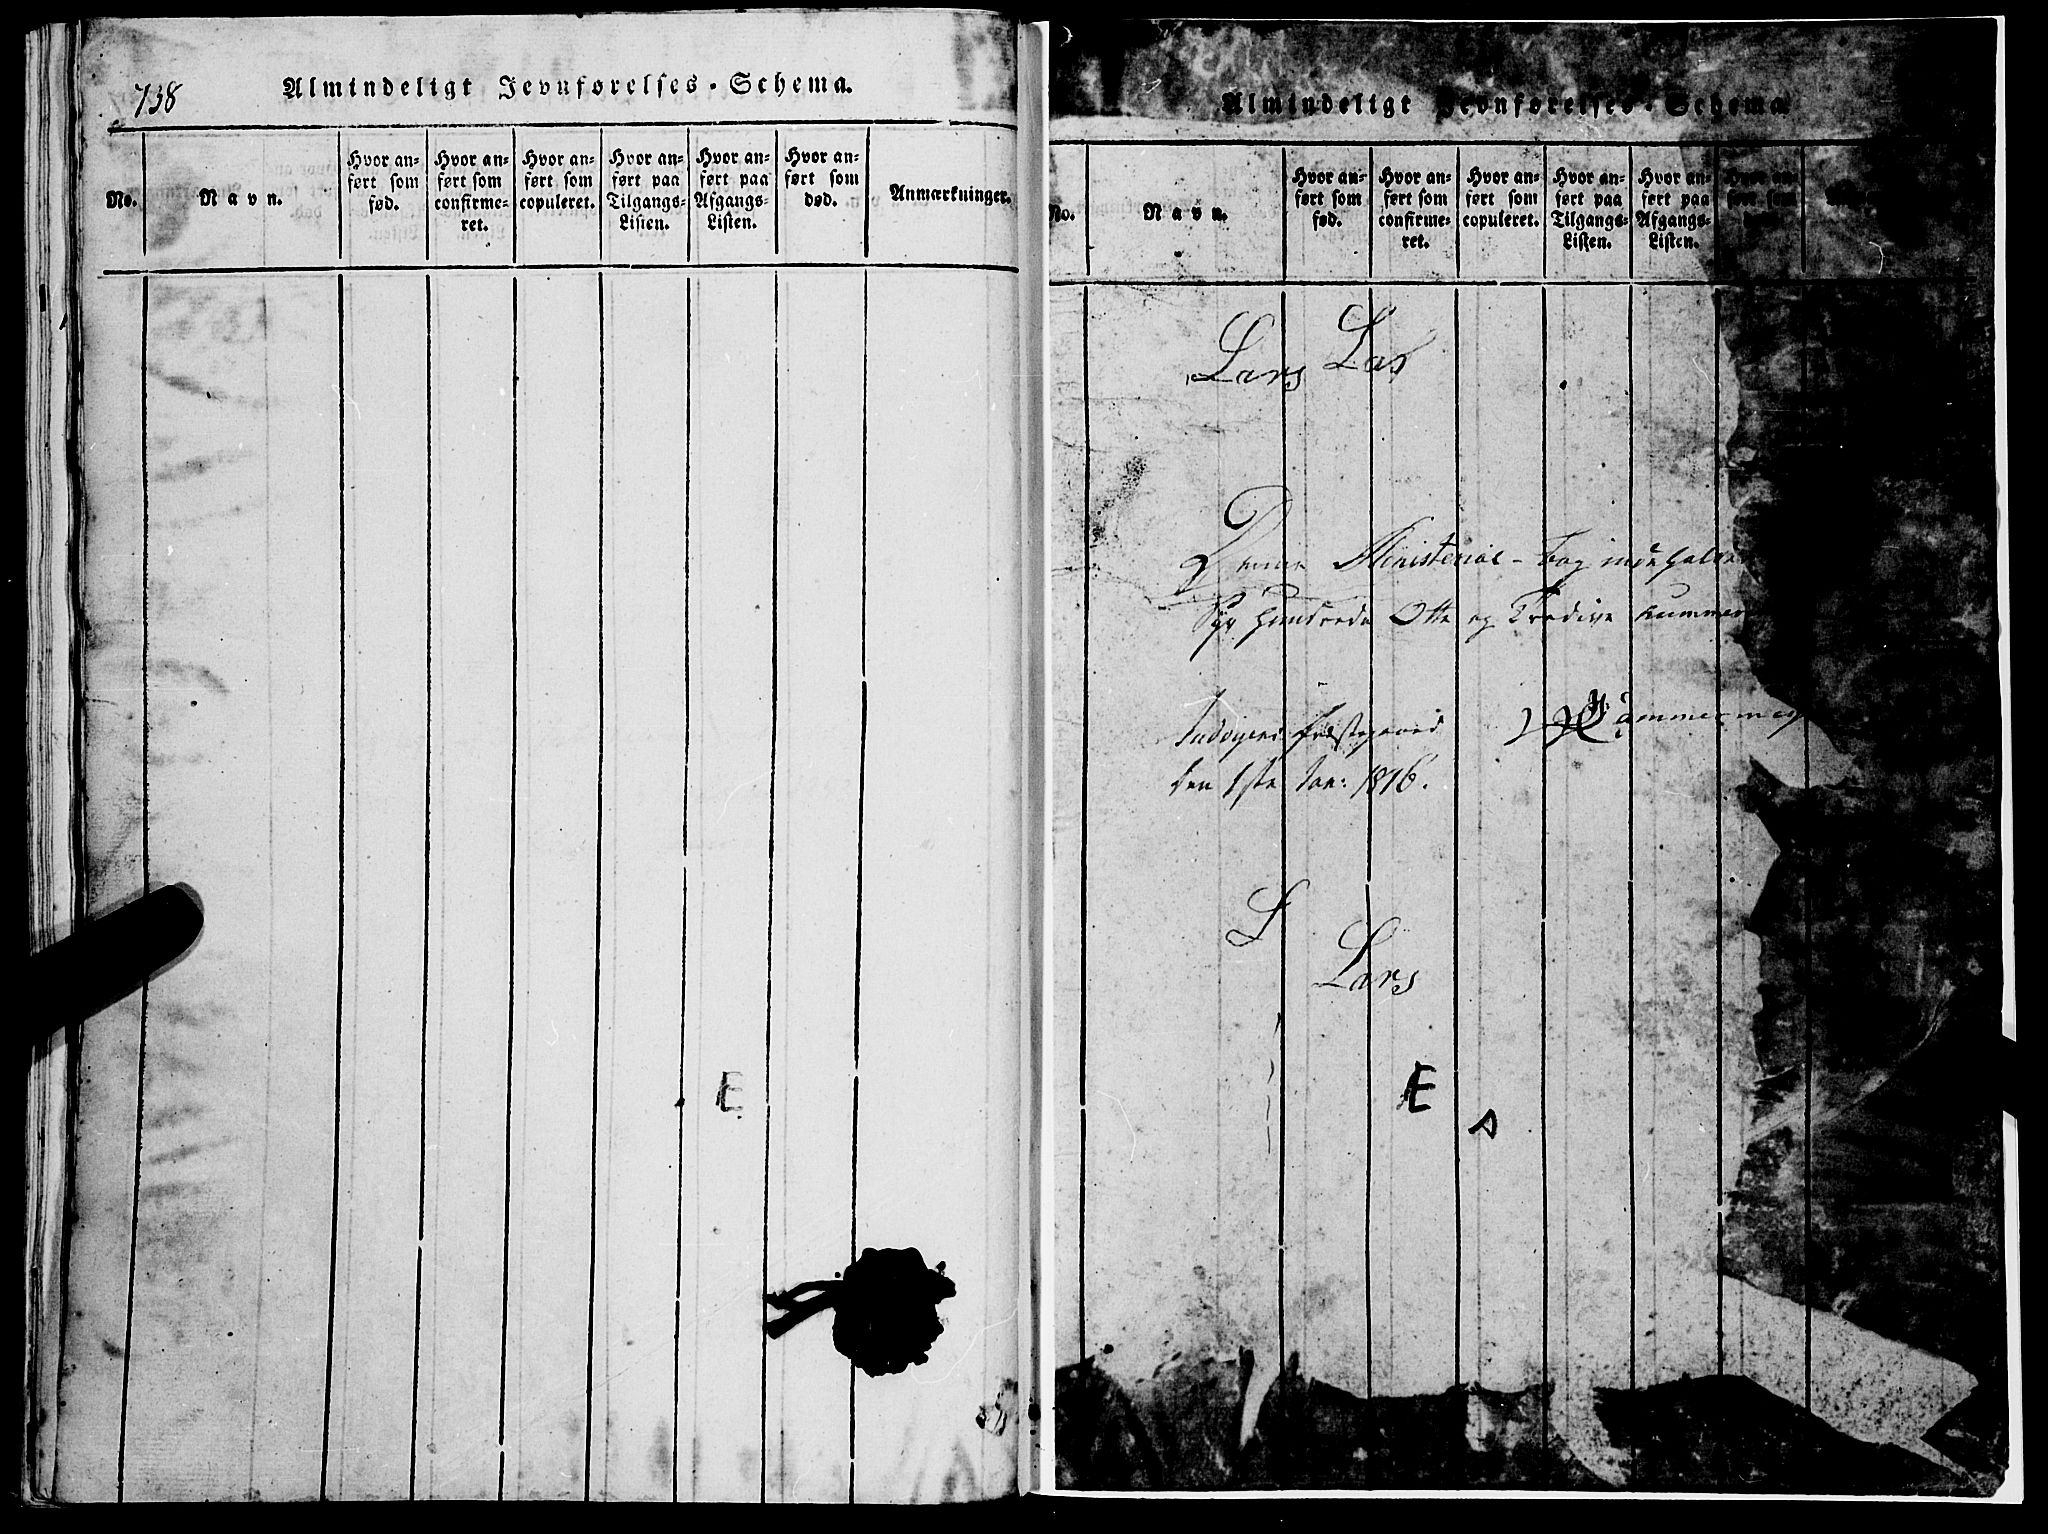 738
Almindeligt Jevnførelses-Schema.
No.
Navn.
Hvor an-
ført som
fød.
Hvor an-
ført som
confirme-
ret.
Hvor an-
ført som
copuleret.
Hvor an-
ført paa
Tilgangs-
Listen.
Hvor an-
ført paa
Afgangs-
Listen.
Hvor an-
ført som
død.
Anmærkninger.
E
Almindeligt Jevnførelses-Schema
No.
Navn.
Hvor an-
ført som
fød.
Hvor an-
ført som
confirme-
ret.
Hvor an-
ført som
copuleret.
Hvor an-
ført paa
Tilgangs-
Listen.
Hvor an-
ført paa
Afgangs-
Listen.
Hvor an-
ført som
Lars Las
Denne Ministerial-Bog indeholder
Syv hundrede Otte og Tredive nummer
Præstegaard
den 1ste Jan: 1816.
L
Lars
E
s